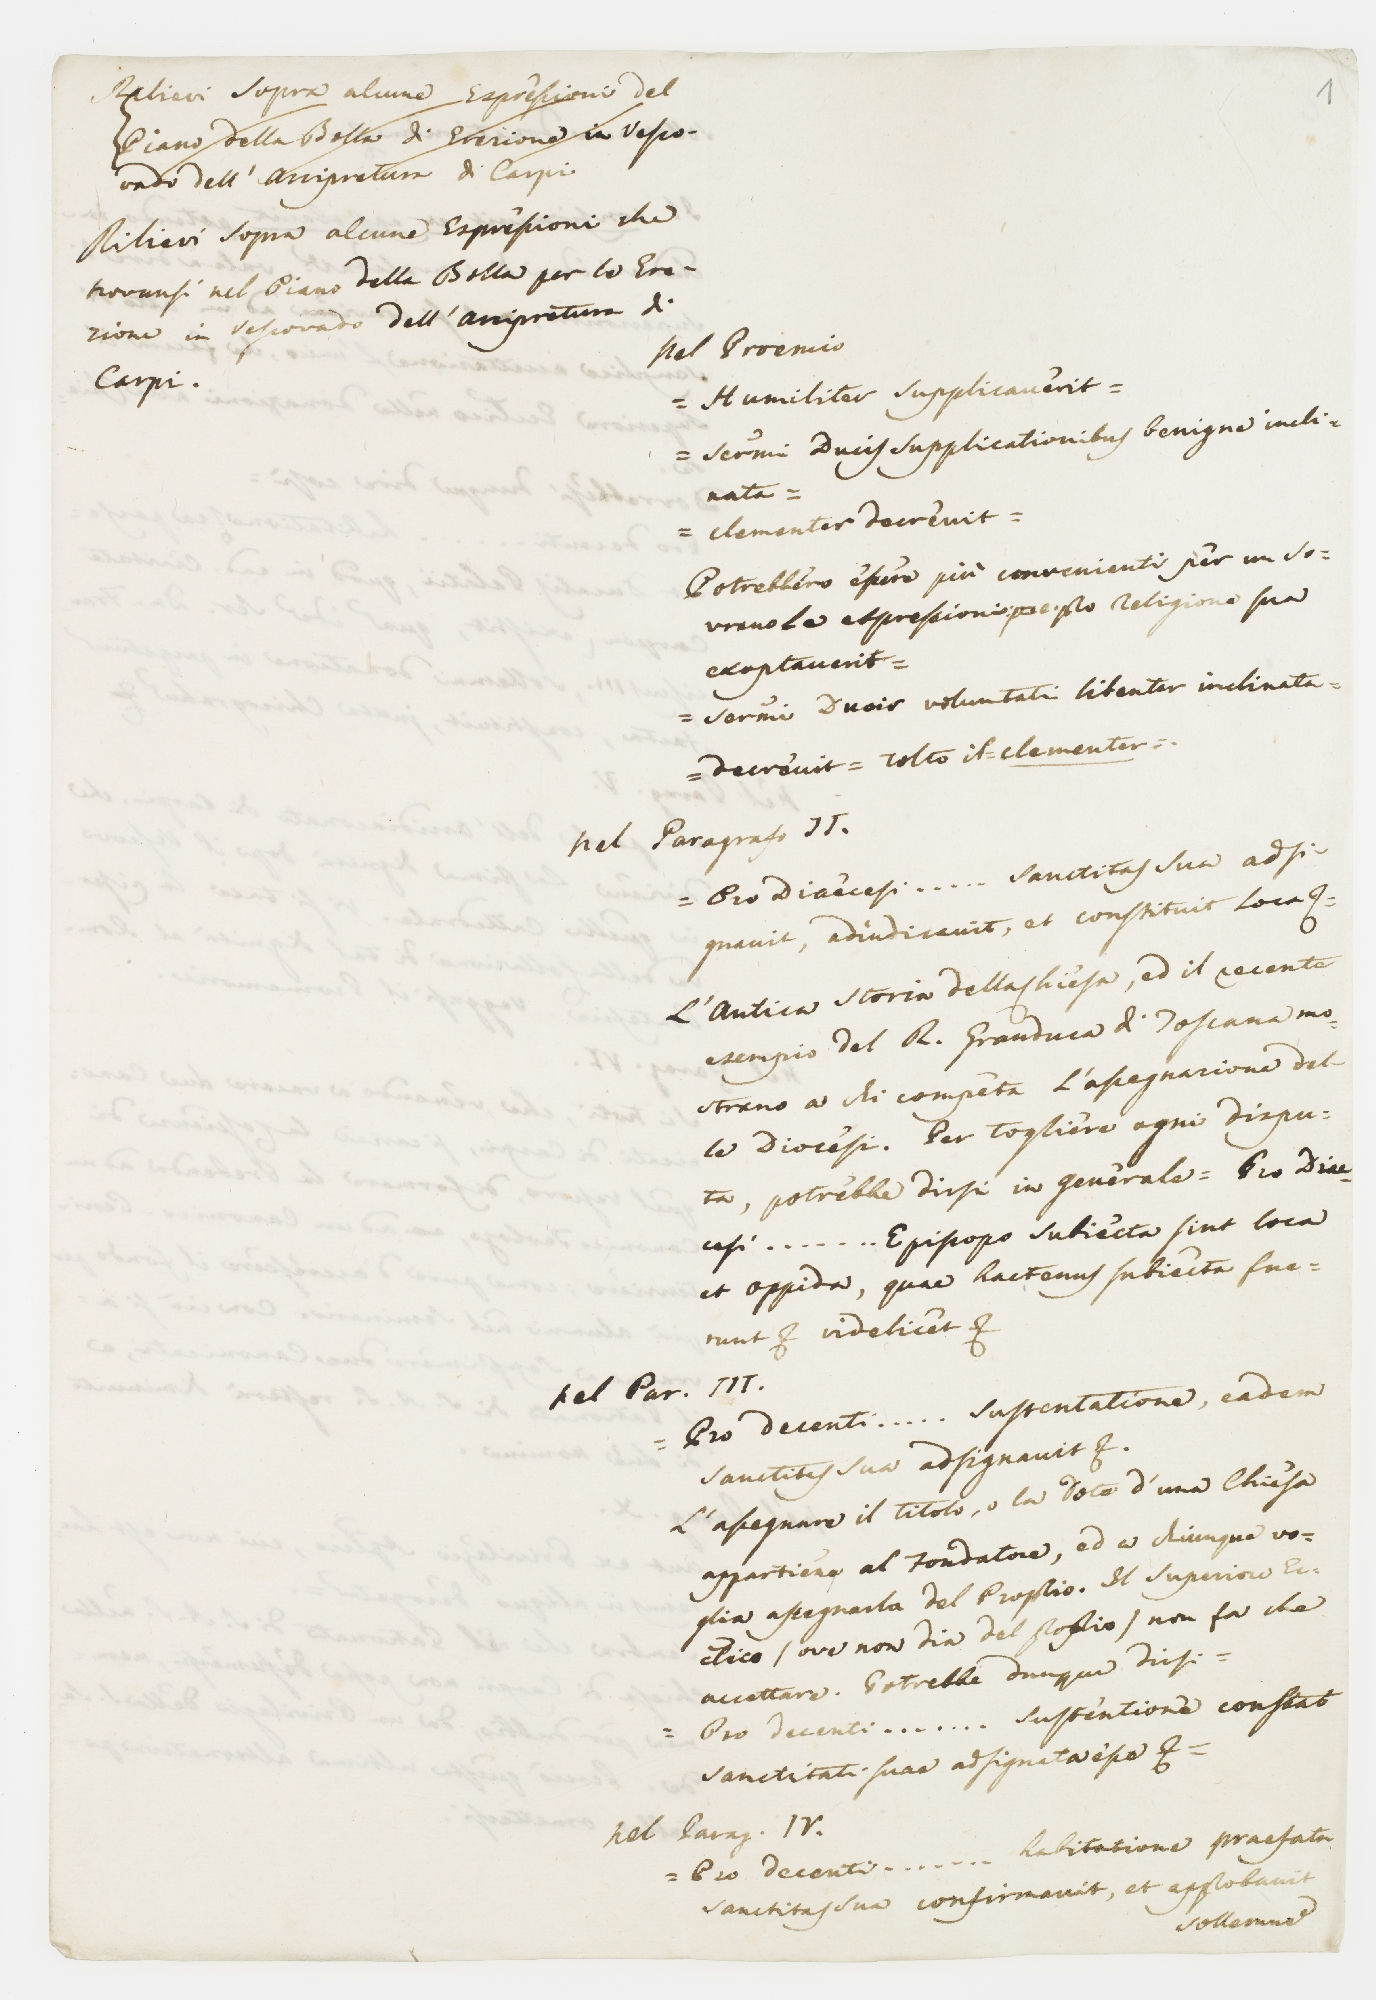 1
Rilievi sopra alcune Espressioni del
Piano della Bolla di Erezione in Vesco-
vado dell' Arcipretura di Carpi
Rilievi sopra alcune Espressioni che
trovansi nel Piano della Bolla per la Ere-
zione in Vescovado dell' Arcipretura di
Carpi.
nel Proemio
= Humiliter supplicaverit =
= Sermi Ducis supplicationibus benigne incli-
nata =
= clementer decrevit =
Potrebbero essere più convenienti per un So=
vrano le espressioni pro Religione sua
exoptaverit =
= Sermi Ducis voluntati libenter inclinata =
= decrevit = tolto il = clementer =.
nel Paragrafo II.
= Pro Diaecesi ..... Sanctitas Sua adsi-
gnavit, adiudicavit, et constituit Loca &=
L'Antica Storia della Chiesa, ed il recente
esempio del R. Granduca di Toscana mo=
strano a chi competa l'assegnazione del-
le Diocesi. Per togliere ogni dispu=
ta, potrebbe dirsi in generale = Pro Diae=
cesi ....... Episcopo subiecta sint loca
et oppida, quae hactenus subiecta fue=
runt & videlicet &
nel Par. III.
= Pro decenti ..... Sustentatione, eadem
Sanctitas Sua adsignavit &.
L'assegnare il titolo, o la Dote d'una Chiesa
appartiene al Fondatore, ed a chiunque vo=
glia assegnarla del Proprio. Il Superiore Ec-
ctico / ove non dia del proprio / non fa che
accettare. Potrebbe dunque dirsi =
= Pro decenti ....... sustentione constat
Sanctitati suae adsignata esse & =
nel Parag. IV.
= Pro decenti ....... habitatione praefata
Sanctitas Sua confirmavit, et approbavit
sollemne